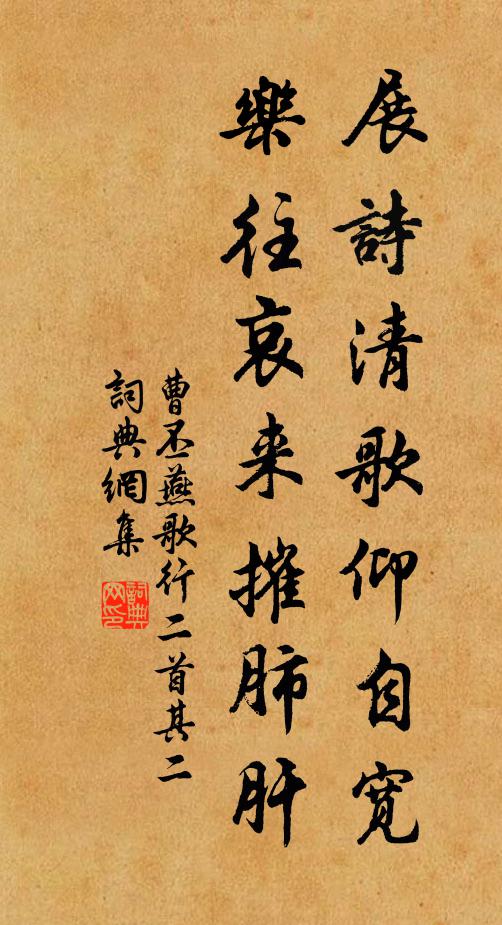 展詩清歌仰自寬
樂往哀来摧肺肝
曹丕燕歌行二首其二
詞典網集
詞典网印